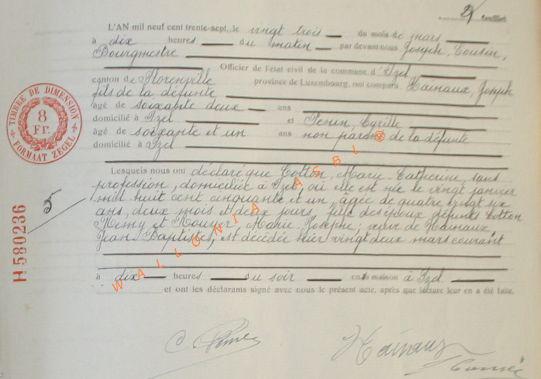 L'AN mil neuf cent trente-sept, le vingt trois du mois de mars
à dix heures du matin par devant nous Joseph,
Bourgmestre
Officier de l'état civil de la commune d'Izel
canton de Florenville province de Luxembourg, ont comparu Hainaux, Joseph
fils de la défunte
âgé de soixante deux ans
domicilié à Izel et Cyrille
âgé de soixante et un ans non parent de la défunte
domicilié à Izel
Lesquels nous ont déclaré que Cotton, Marie-Catherine, sans
profession, domiciliée à Izel, où elle est née le vingt janvier
mil huit cent cinquante et un, âgée de quatre vingt six
ans, deux mois et deux jours, fille des époux défunts Cotton
Remy et Marie Josephe; de Hainaux,
Jean Baptiste, est décédée hier vingt deux mars courant
à dix heures du soir en sa maison à Izel
et ont les déclarants signé avec nous le présent acte, après que lecture leur en a été faite.
Hainaux
TIMBRE DE DIMENSION
8
FR.
FORMAAT ZEGEL
5
H 580236
WALLONIA ASBL